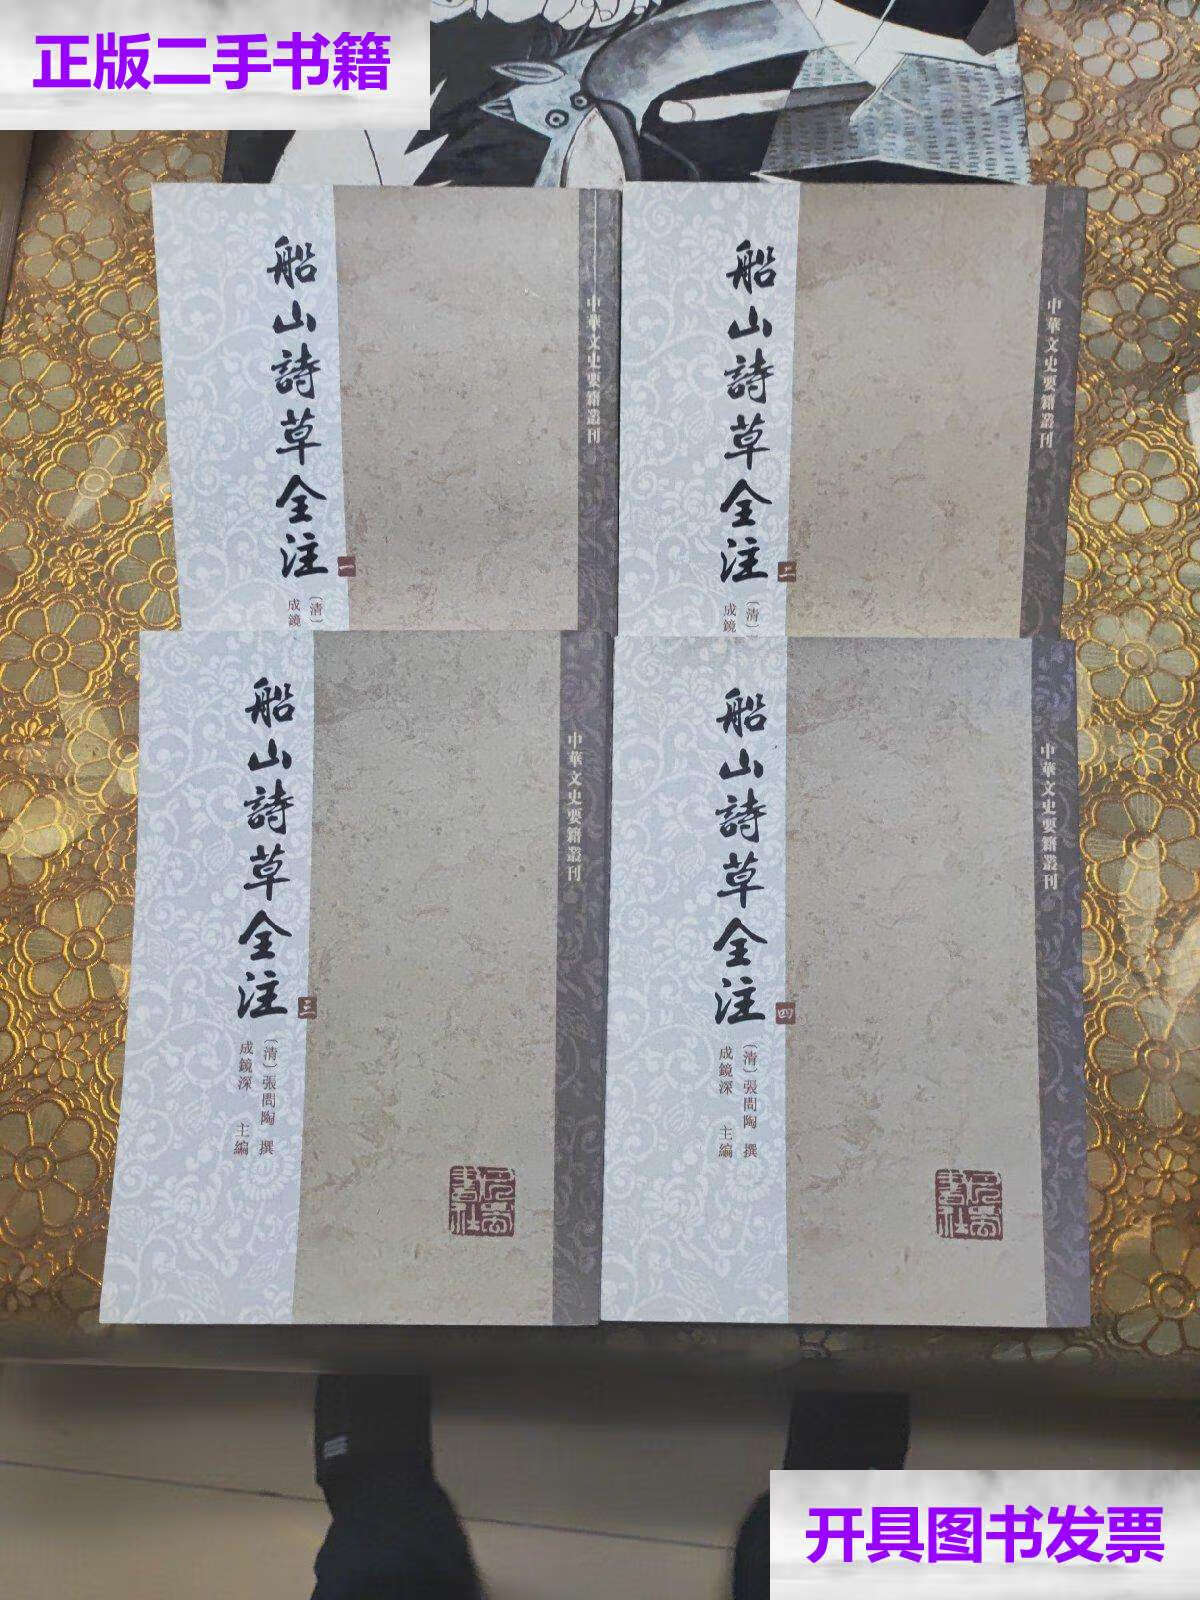 正版二手书籍
船山詩草全注
一
〔清〕
成鏡
中華文史要籍叢刊
船山詩草全注
二
〔清〕
成鏡
中華文史要籍叢刊
船山詩草全注
三
〔清〕張問陶 撰
成鏡深 主編
中華文史要籍叢刊
巴蜀書社
船山詩草全注
四
〔清〕張問陶 撰
成鏡深 主編
中華文史要籍叢刊
巴蜀書社
开具图书发票